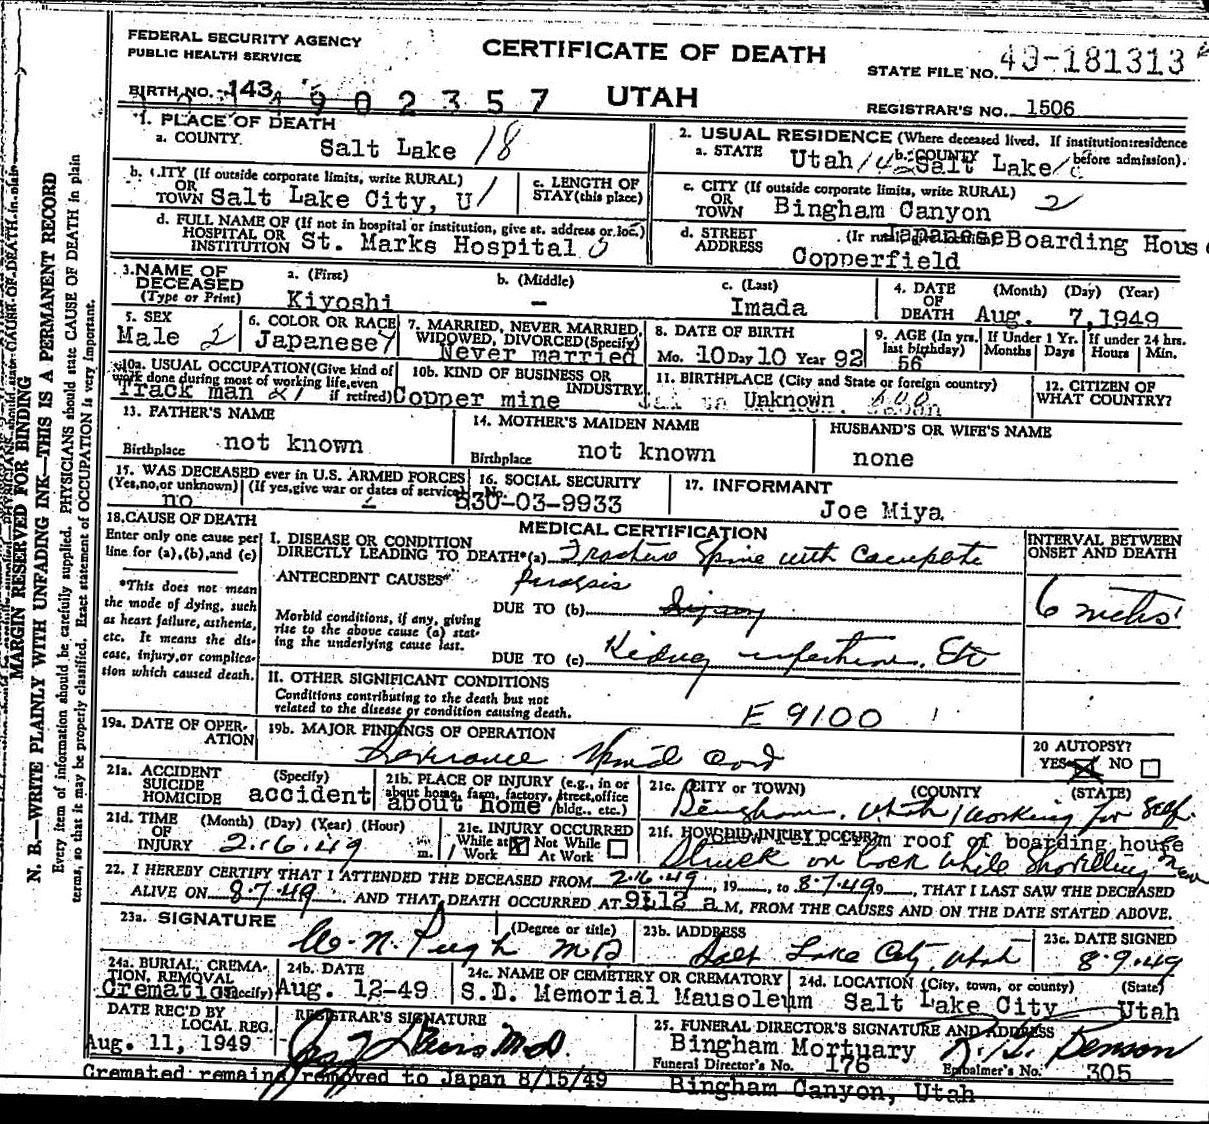 FEDERAL SECURITY AGENCY
PUBLIC HEALTH SERVICE
CERTIFICATE OF DEATH
STATE FILE NO. 49-181313
BIRTH NO. 143
1902357
UTAH
REGISTRAR'S NO. 1506
1. PLACE OF DEATH
a. COUNTY Salt Lake 18
b. CITY (If outside corporate limits, write RURAL)
OR TOWN Salt Lake City, U
c. LENGTH OF STAY (this place)
d. FULL NAME OF (If not in hospital or institution, give st. address or loc.)
HOSPITAL OR INSTITUTION St. Marks Hospital
2. USUAL RESIDENCE (Where deceased lived. If institution:residence before admission).
a. STATE Utah b. COUNTY Salt Lake
c. CITY (If outside corporate limits, write RURAL)
OR TOWN Bingham Canyon 2
d. STREET ADDRESS Japanese Boarding House
Copperfield
3. NAME OF DECEASED (Type or Print)
a. (First) Kiyoshi
b. (Middle) –
c. (Last) Imada
4. DATE OF DEATH (Month) (Day) (Year) Aug. 7,1949
5. SEX Male
6. COLOR OR RACE Japanese
7. MARRIED, NEVER MARRIED, WIDOWED, DIVORCED (Specify) Never married
8. DATE OF BIRTH Mo. 10 Day 10 Year 92
9. AGE (In yrs. last birthday) 56
If Under 1 Yr. Months Days
If under 24 hrs. Hours Min.
10a. USUAL OCCUPATION (Give kind of work done during most of working life, even if retired) Track man 21
10b. KIND OF BUSINESS OR INDUSTRY Copper mine
11. BIRTHPLACE (City and State or foreign country) Unknown
12. CITIZEN OF WHAT COUNTRY?
13. FATHER'S NAME not known
Birthplace
14. MOTHER'S MAIDEN NAME not known
Birthplace
HUSBAND'S OR WIFE'S NAME none
15. WAS DECEASED ever in U.S. ARMED FORCES
(Yes,no,or unknown) (If yes,give war or dates of service)
no
16. SOCIAL SECURITY No. 530-03-9933
17. INFORMANT Joe Miya
18. CAUSE OF DEATH
Enter only one cause per line for (a), (b), and (c)
*This does not mean the mode of dying, such as heart failure, asthenia, etc. It means the disease, injury, or complication which caused death.
MEDICAL CERTIFICATION
INTERVAL BETWEEN ONSET AND DEATH
I. DISEASE OR CONDITION DIRECTLY LEADING TO DEATH* (a) Fracture Spine with Complete
ANTECEDENT CAUSES* Paralysis
DUE TO (b) Injury
6 mths
Morbid conditions, if any, giving rise to the above cause (a) stating the underlying cause last.
DUE TO (c) Kidney infection, Etc
II. OTHER SIGNIFICANT CONDITIONS
Conditions contributing to the death but not related to the disease or condition causing death.
E 9100
19a. DATE OF OPERATION
19b. MAJOR FINDINGS OF OPERATION
Severance Spinal Cord
20 AUTOPSY?
YES NO
21a. ACCIDENT SUICIDE HOMICIDE (Specify) accident
21b. PLACE OF INJURY (e.g., in or about home, farm, factory, street, office bldg., etc.) about home
21c. (CITY or TOWN) (COUNTY) (STATE)
Bingham, Utah working for self
21d. TIME OF INJURY (Month) (Day) (Year) (Hour) m.
2.16.49
21e. INJURY OCCURRED
While at Work Not While At Work
21f. HOW DID INJURY OCCUR? roof of boarding house
Struck on back while Shovelling
22. I HEREBY CERTIFY THAT I ATTENDED THE DECEASED FROM 2.16.49, 19, to 8.7.49, THAT I LAST SAW THE DECEASED
ALIVE ON 8.7.49 AND THAT DEATH OCCURRED AT 9:12 a M, FROM THE CAUSES AND ON THE DATE STATED ABOVE.
23a. SIGNATURE (Degree or title) W. N. Pugh MD
23b. ADDRESS Salt Lake City, Utah
23c. DATE SIGNED 8.9.49
24a. BURIAL, CREMATION, REMOVAL (Specify) Cremation
24b. DATE Aug. 12-49
24c. NAME OF CEMETERY OR CREMATORY S.L. Memorial Mausoleum
24d. LOCATION (City, town, or county) (State) Salt Lake City Utah
DATE REC'D BY LOCAL REG. Aug. 11, 1949
REGISTRAR'S SIGNATURE M.D.
25. FUNERAL DIRECTOR'S SIGNATURE AND ADDRESS
Bingham Mortuary
Benson
Funeral Director's No. 176
Embalmer's No. 305
Cremated remains removed to Japan 8/15/49
Bingham Canyon, Utah
MARGIN RESERVED FOR BINDING
N. B.—WRITE PLAINLY WITH UNFADING INK—THIS IS A PERMANENT RECORD
Every item of information should be carefully supplied. PHYSICIANS should state CAUSE OF DEATH in plain
terms, so that it may be properly classified. Exact statement of OCCUPATION is very important.